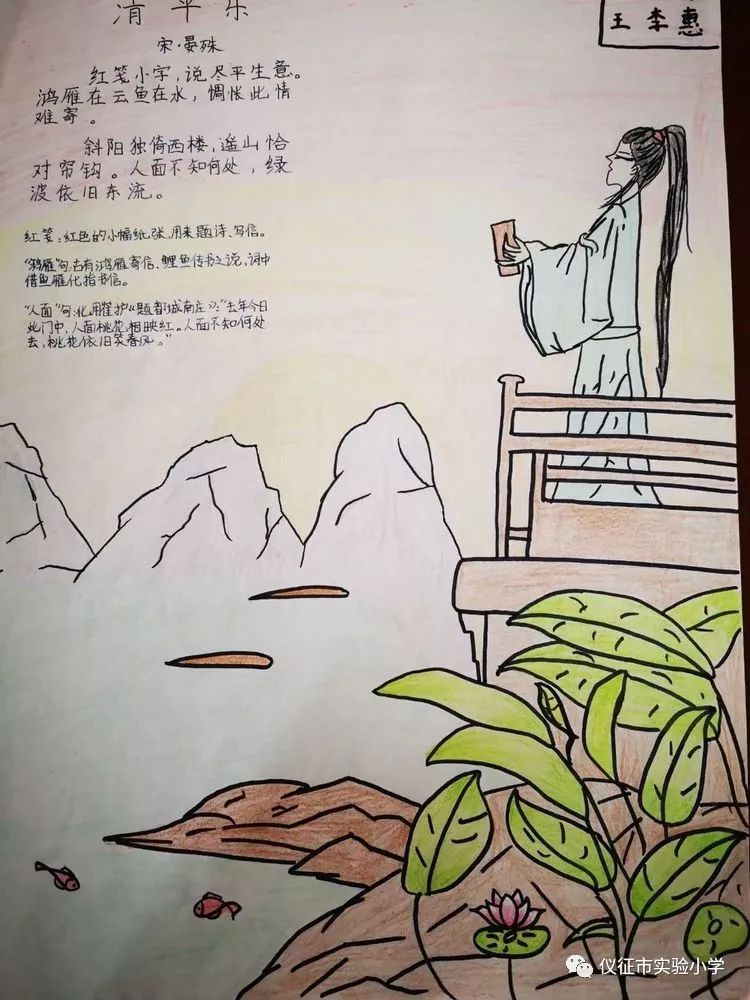 清平乐
宋·晏殊
红笺小字，说尽平生意。
鸿雁在云鱼在水，惆怅此情
难寄。
斜阳独倚西楼，遥山恰
对帘钩。人面不知何处，绿
波依旧东流。
红笺：红色的小幅纸张，用来题诗、写信。
"鸿雁"句：古有鸿雁寄信、鲤鱼传书之说，词中
借鱼雁代指书信。
"人面"句：化用崔护《题都城南庄》："去年今日
此门中，人面桃花相映红。人面不知何处
去，桃花依旧笑春风。"
王李惠
仪征市实验小学